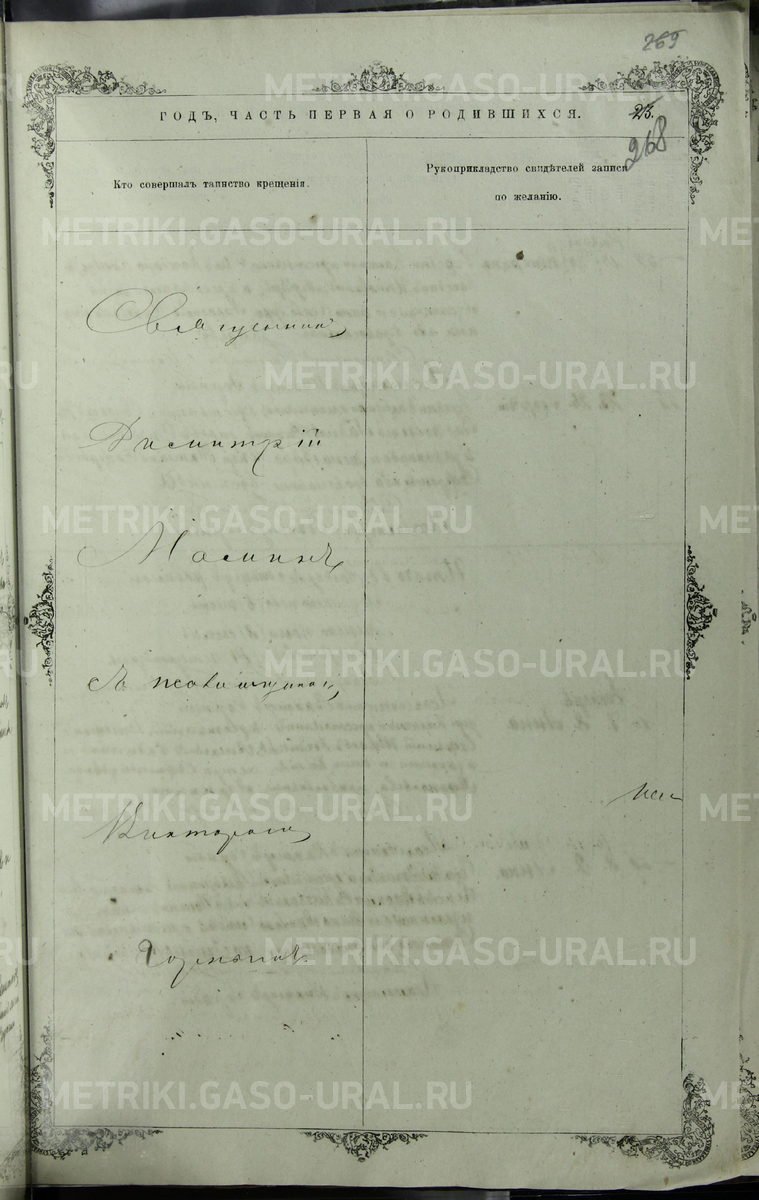 269
ГОДЪ, ЧАСТЬ ПЕРВАЯ О РОДИВШИХСЯ.
25.
268
Кто совершалъ таинство крещенія.
Рукоприкладство свидѣтелей записи
по желанію.
Священникъ
Димитрій
съ псаломщикомъ
Викторомъ
METRIKI.GASO-URAL.RU